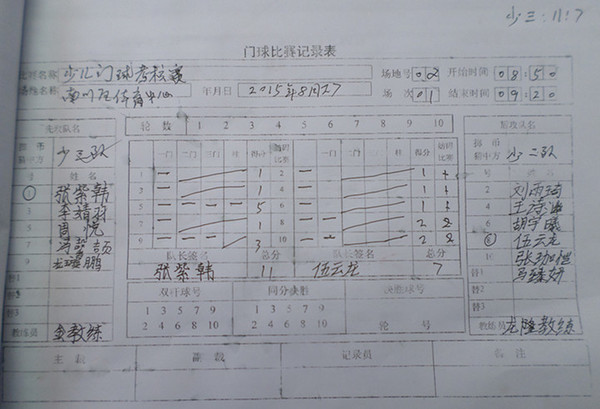 少三:11:7
门球比赛记录表
比赛名称 少儿门球考核赛 场地号 02 开始时间 08:50
场地名称 南川区体育中心 年月日 2015年8月27 场次 01 结束时间 09:20
先攻队名 轮数 1 2 3 4 5 6 7 8 9 10 后攻队名
少三队 一门 二门 三门 柱 得分 一门 二门 三门 柱 得分 少二队
号 姓名 号 姓名
① 张紫韩 1 一 1 2 一 1 2 刘雨
3 李靖 3 一 1 4 一 1 4
5 周悦 5 一 一 一 5 6 一 1 6 胡宇曦
7 7 一 1 8 一 一 2 ⑧ 伍云龙
9 鹏 9 一 一 3 10 一 一 2 10
替1 队长签名 总分 队长签名 总分 替1
替2 张紫韩 11 伍云龙 7 替2
替3 双杆球号 同分换形 决胜球号 替3
1 3 5 7 9 1 3 5 7 9
教练员 金教练 2 4 6 8 10 2 4 6 8 10 轮 号 教练员 龙隆教练
主裁 副裁 记录员 备注